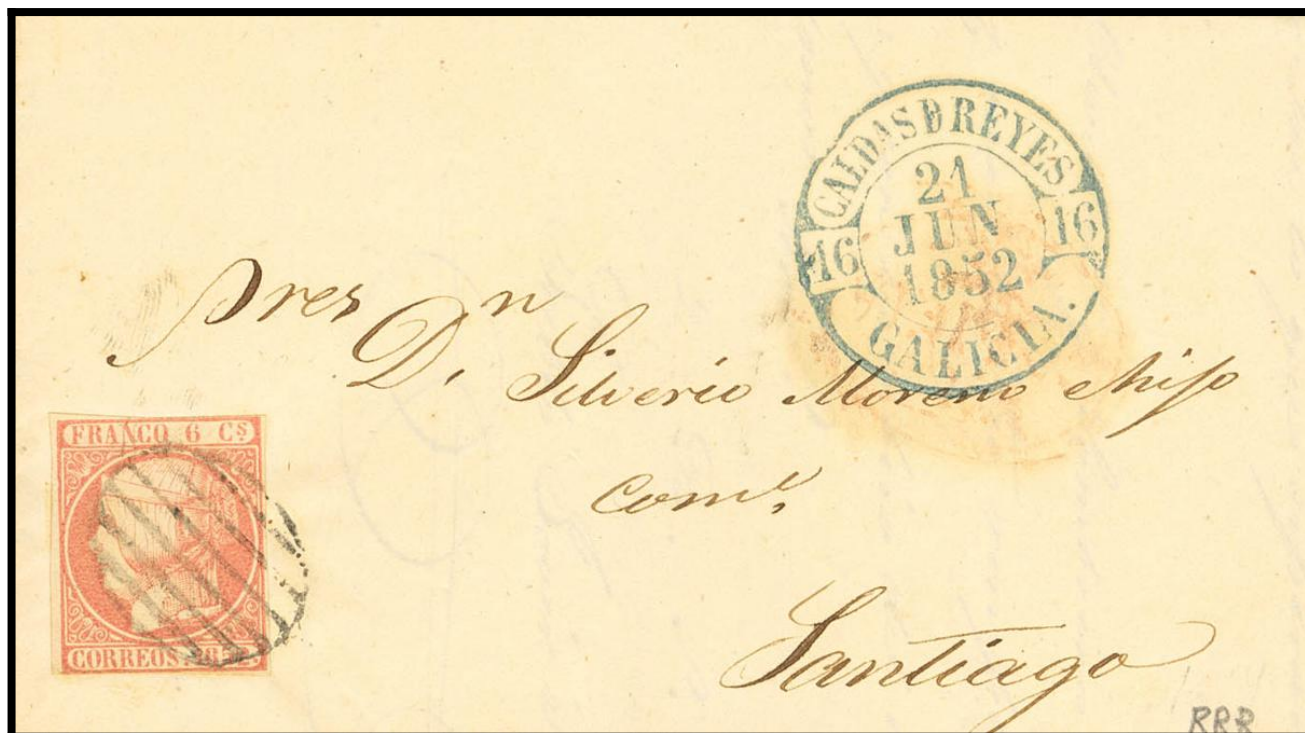 CALDAS D REYES
21
JUN
1852
16 16
GALICIA.
Sres
D.n Silverio Moreno
com.
Santiago
FRANCO 6 Cs
CORREOS 1852
RRR